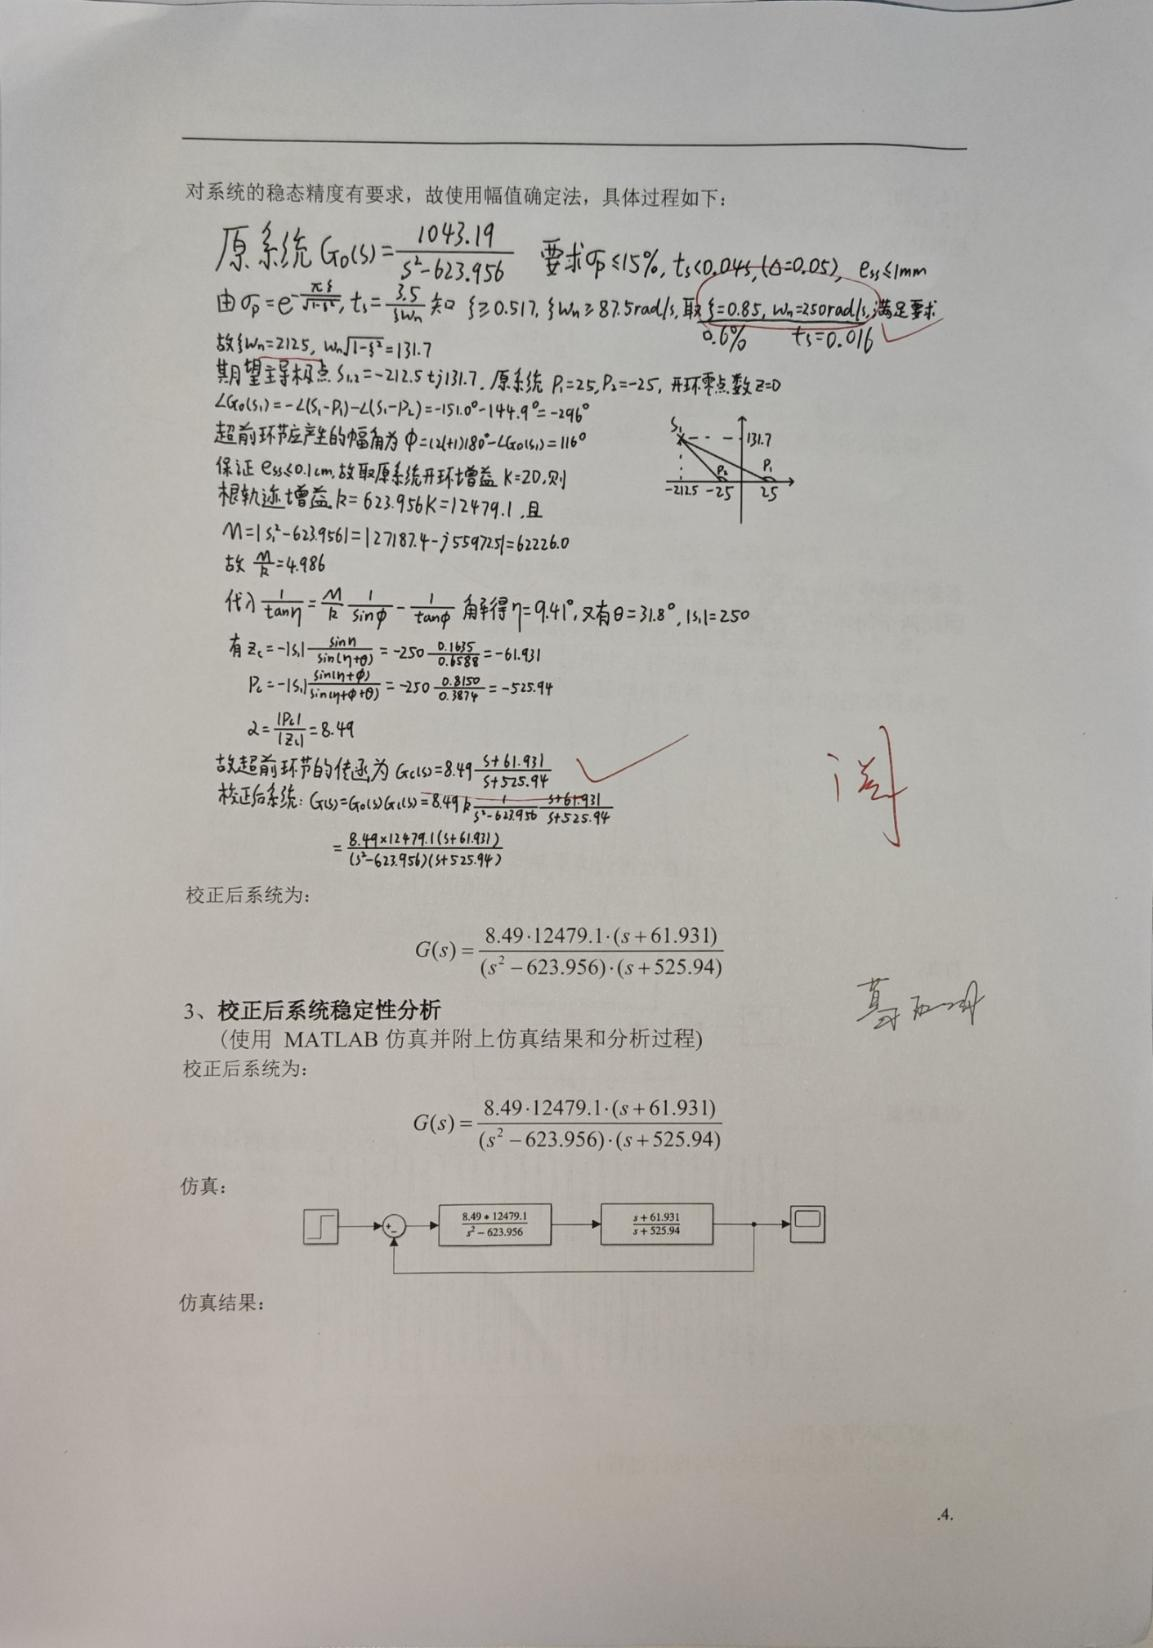 对系统的稳态精度有要求，故使用幅值确定法，具体过程如下：
原系统 G₀(s)=1043.19/(s²-623.956) 要求σp≤15%, ts<0.04s,(Δ=0.05), ess≤1mm
由σp=e^(-πξ/√(1-ξ²)), ts=3.5/(ξWn) 知 ξ≥0.517, ξWn≥87.5rad/s, 取ξ=0.85, Wn=250rad/s, 满足要求
0.6% ts=0.016
故ξWn=2125, Wn√(1-ξ²)=131.7
期望主导极点 S₁,₂=-212.5±j131.7. 原系统 P₁=25, P₂=-25, 开环零点数 Z=0
∠G₀(s₁)=-∠(S₁-P₁)-∠(S₁-P₂)=-151.0°-144.9°=-296°
超前环节应产生的幅角为 φ=(2l+1)180°-∠G₀(s₁)=116°
保证 ess≤0.1cm, 故取原系统开环增益 K=20, 则
根轨迹增益 k=623.956K=12479.1, 且
M=|s₁²-623.956|=|27187.4-j55972.5|=62226.0
故 M/k=4.986
S₁ 131.7
P₂ P₁
-2125 -25 25
代入 1/tanη=M/k 1/sinφ - 1/tanφ 解得η=9.41°, 又有θ=31.8°, |s₁|=250
有 Zc=-|s₁| sinη/sin(η+θ) = -250 0.1635/0.6588 = -61.931
Pc=-|s₁| sin(η+φ)/sin(η+φ+θ) = -250 0.8150/0.3874 = -525.94
α=|Pc|/|Zc|=8.49
故超前环节的传函为 Gc(s)=8.49 (s+61.931)/(s+525.94)
校正后系统: G(s)=G₀(s)Gc(s)=8.49k 1/(s²-623.956) (s+61.931)/(s+525.94)
=8.49×12479.1(s+61.931)/((s²-623.956)(s+525.94))
校正后系统为：
G(s)=8.49·12479.1·(s+61.931)/((s²-623.956)·(s+525.94))
3、校正后系统稳定性分析
(使用 MATLAB 仿真并附上仿真结果和分析过程)
校正后系统为：
G(s)=8.49·12479.1·(s+61.931)/((s²-623.956)·(s+525.94))
仿真：
8.49*12479.1/(s²-623.956) (s+61.931)/(s+525.94)
仿真结果：
.4.